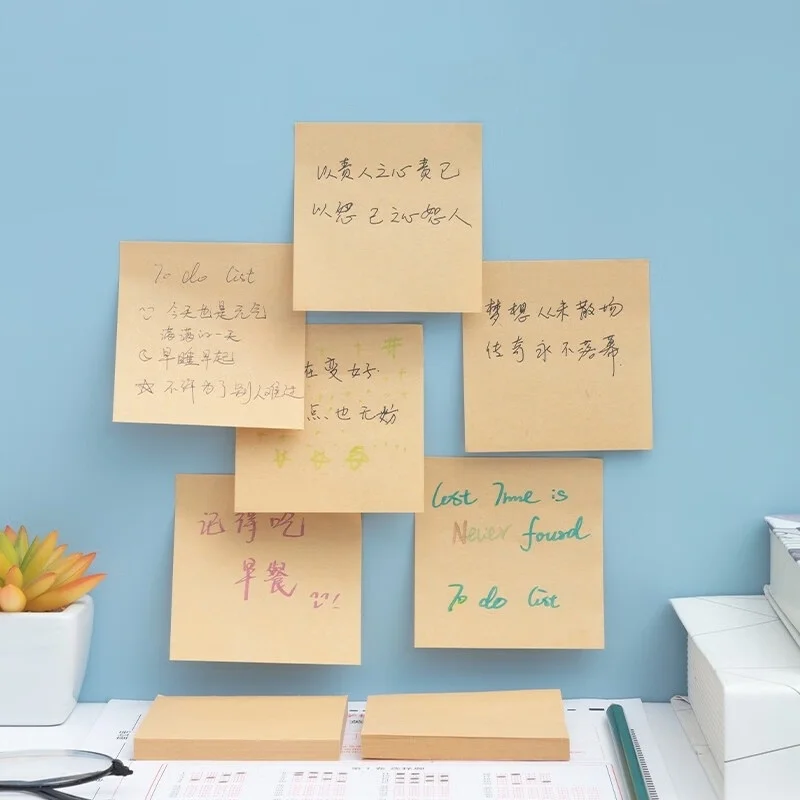 以责人之心责己
以恕己之心恕人
To do list
今天也是元气
满满的一天
早睡早起
不许为了别人难过
梦想从未散场
传奇永不落幕
在变好
点、也无妨
记得吃
早餐
Lost Time is
Never found
To do list